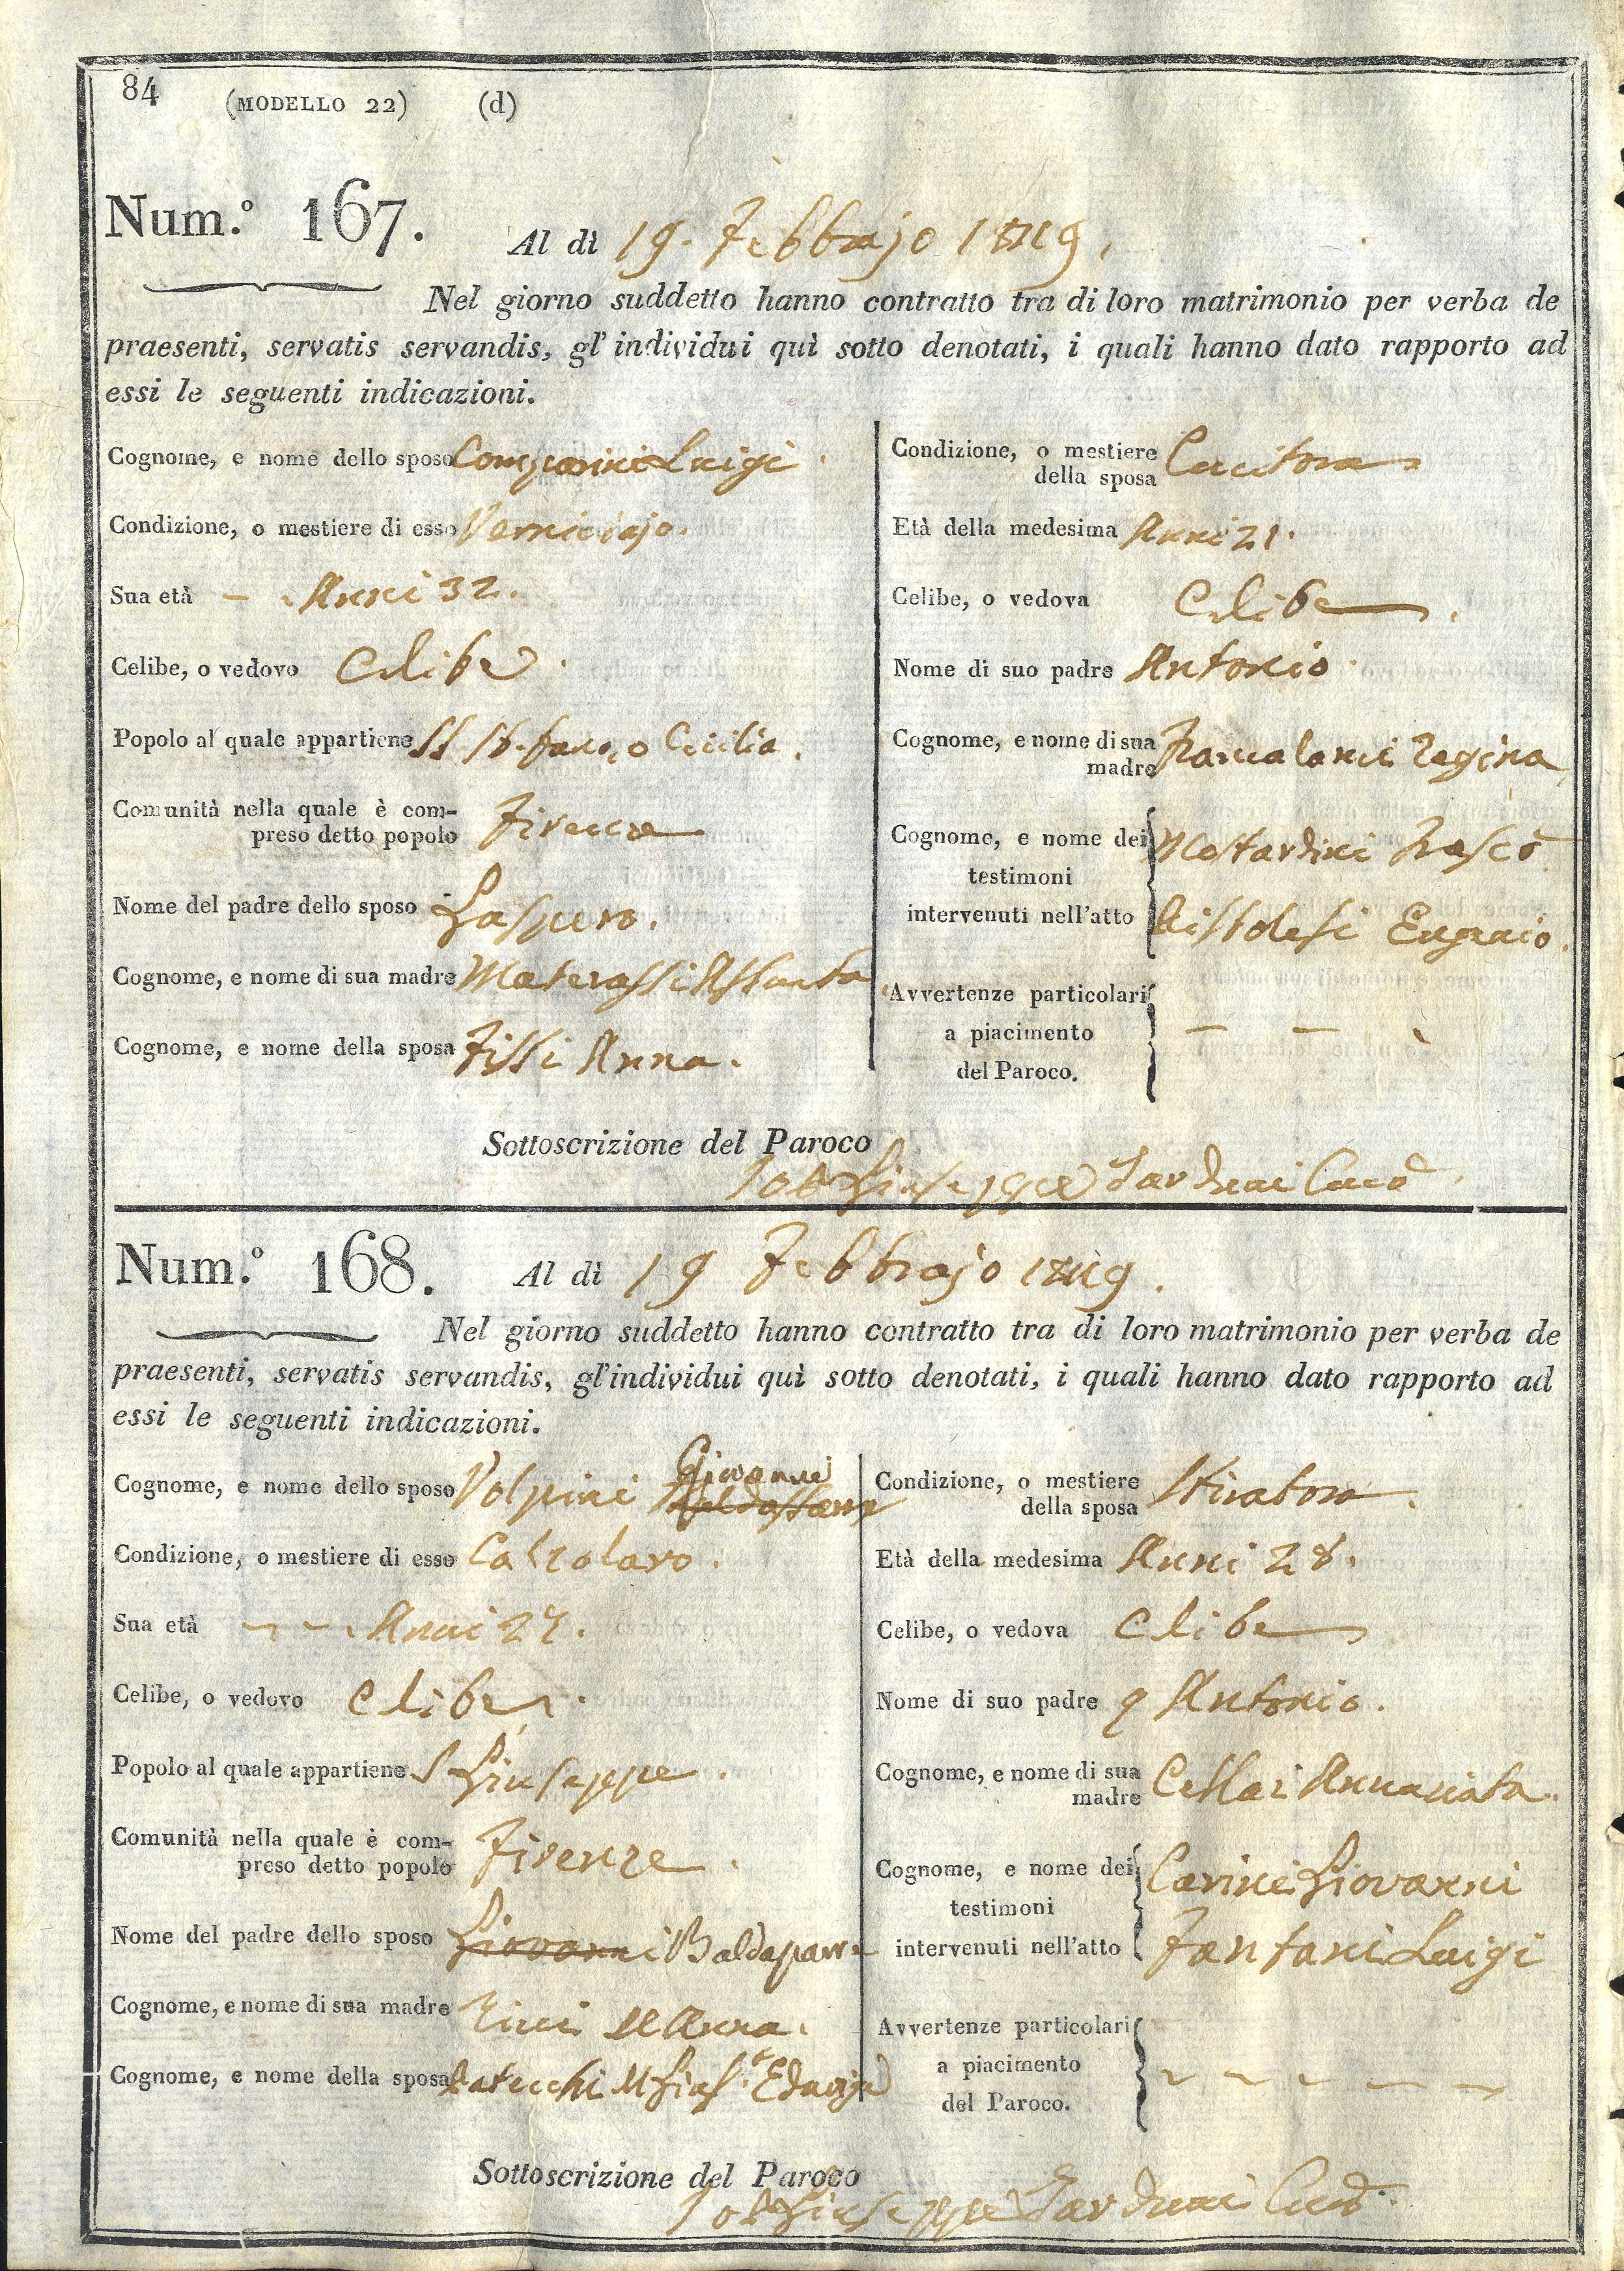 84 (MODELLO 22) (d)
Num.º 167. Al dì 19. Febbrajo
Nel giorno suddetto hanno contratto tra di loro matrimonio per verba de
praesenti, servatis servandis, gl'individui quì sotto denotati, i quali hanno dato rapporto ad
essi le seguenti indicazioni.
Cognome, e nome dello sposo Comparini Luigi
Condizione, o mestiere di esso
Sua età - Anni 32.
Celibe, o vedovo Celibe
Popolo al quale appartiene Cecilia.
Comunità nella quale è com-
preso detto popolo Firenze
Nome del padre dello sposo Gaspero.
Cognome, e nome di sua madre Materassi Assunta
Cognome, e nome della sposa Fissi Anna.
Condizione, o mestiere
della sposa Cucitora
Età della medesima Anni 21.
Celibe, o vedova Celibe
Nome di suo padre Antonio
Cognome, e nome di sua
madre Francalanci Regina
Cognome, e nome dei Mostardini
testimoni
intervenuti nell'atto Pistolesi Eugenio.
Avvertenze particolari
a piacimento - -
del Paroco.
Sottoscrizione del Paroco
Giuseppe
Num.º 168. Al dì 19 Febbrajo
Nel giorno suddetto hanno contratto tra di loro matrimonio per verba de
praesenti, servatis servandis, gl'individui quì sotto denotati, i quali hanno dato rapporto ad
essi le seguenti indicazioni.
Giovanni
Cognome, e nome dello sposo Volpini
Condizione, o mestiere di esso Calzolaro.
Sua età Anni
Celibe, o vedovo Celibe
Popolo al quale appartiene S Giuseppe.
Comunità nella quale è com-
preso detto popolo Firenze.
Nome del padre dello sposo Giovanni
Cognome, e nome di sua madre Ricci
Cognome, e nome della sposa
Condizione, o mestiere
della sposa Stiratora.
Età della medesima Anni 28.
Celibe, o vedova Celibe
Nome di suo padre q Antonio.
Cognome, e nome di sua
madre Cellai Annunziata.
Cognome, e nome dei Carini Giovanni
testimoni
intervenuti nell'atto Fantani Luigi
Avvertenze particolari
a piacimento - - - - -
del Paroco.
Sottoscrizione del Paroco
Giuseppe